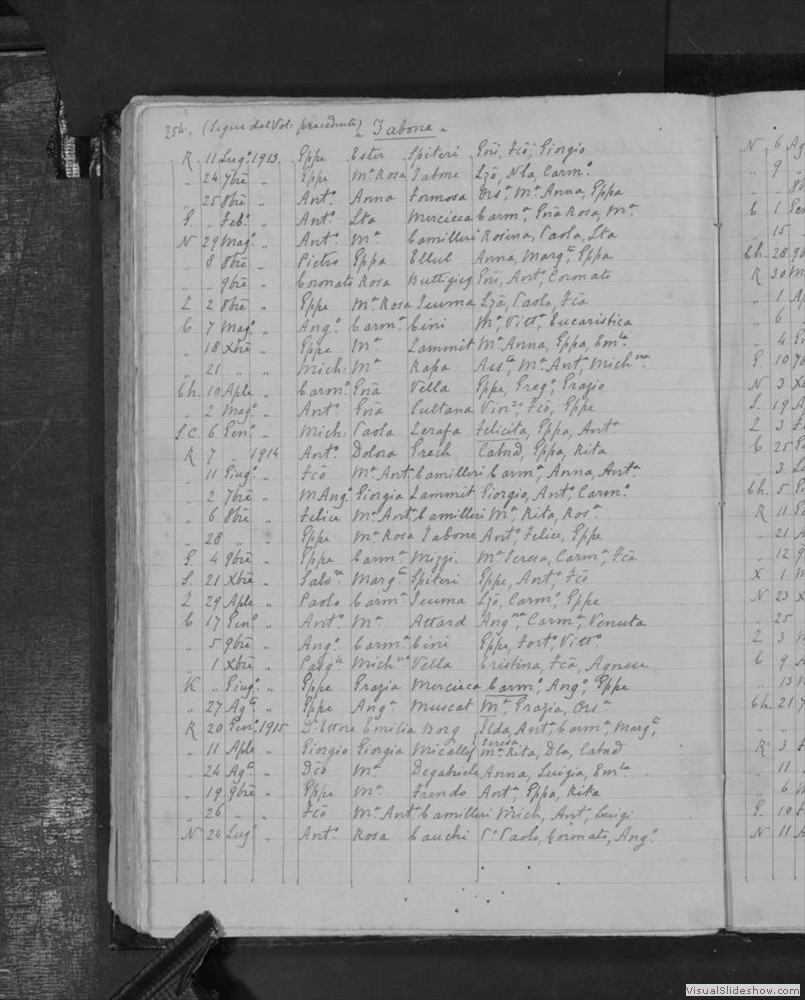 254. (Segue dal Vol: precedente) „ Tabone „
R 11 Lug.o 1913 Gppe Ester Spiteri Gni, Fcō, Giorgio
„ 24 7bre „ Gppe Ma Rosa Tabone Lzō, Nla, Carmo
„ 25 8bre „ Anto Anna Formosa Orsa, Ma Anna, Gppa
G „ Febo „ Anto Lta Mercieca Carma, Gña Rosa, Ma
N 29 Mago „ Anto Ma Camilleri Rosina, Paola, Lta
„ 8 8bre „ Pietro Gppa Ellul Anna, Marga, Gppa
„ „ 9bre „ Coronato Rosa Buttigieg Gni, Anto, Coronato
Z 2 8bre „ Gppe Ma Rosa Psuma Lzō, Paolo, Fcā
C 7 Mago „ Ango Carma Cini Ma, Vitta, Eucaristica
„ 18 Xbre „ Gppe Ma Zammit Ma Anna, Gppa, Emla
„ 21 „ „ Mich: Ma Rapa Assta, Ma Anta, Michna
Ch. 10 Aple „ Carmo Gña Vella Gppe, Grego, Grazio
„ 2 Mago „ Anto Gña Sultana Vinzo, Fcō, Gppe
S.C. 6 Geno „ Mich: Paola Zerafa Felicita, Gppa, Anta
R 7 „ 1914 Anto Dolora Grech Catnd, Gppa, Rita
„ 11 Giugo „ Fcō Ma Anta Camilleri Carma, Anna, Anta
„ 2 7bre „ M Ango Giorgia Zammit Giorgio, Anto, Carmo
„ 6 8bre „ Felice Ma Anta Camilleri Ma, Rita, Rosa
„ 28 „ „ Gppe Ma Rosa Tabone Anto, Felice, Gppe
G. 4 9bre „ Gppe Carma Mizzi Ma Teresa, Carma, Fcā
S. 21 Xbre „ Salvre Marga Spiteri Gppe, Anto, Fcō
Z 29 Aple „ Paolo Carma Psuma Lzō, Carmo, Gppe
C 17 Geno „ Anto Ma Attard Angna, Carma, Venuta
„ 5 9bre „ Ango Carma Cini Gppe, Forto, Vitto
„ 1 Xbre „ Pasqle Michna Vella Cristina, Fcā, Agnese
K „ Giugo „ Gppe Grazia Mercieca Carmo, Ango, Gppe
„ 27 Aga „ Gppe Anga Muscat Ma, Grazia, Orsa
R 20 Geno 1915 Dr Ettore Emilia Borg Ilda, Anta, Carma, Marga, Teresa
„ 11 Aple „ Giorgio Giorgia Micallef Ma Rita, Dla, Catnd
„ 24 Aga „ Dcō Ma Degabriele Anna, Luigia, Emla
„ 19 9bre „ Gppe Ma Frendo Anta, Gppa, Rita
„ 26 „ „ Fcō Ma Anta Camilleri Mich, Anto, Luigi
N 24 Lugo „ Anto Rosa Cauchi Po Paolo, Coronato, Ango
VisualSlideshow.com